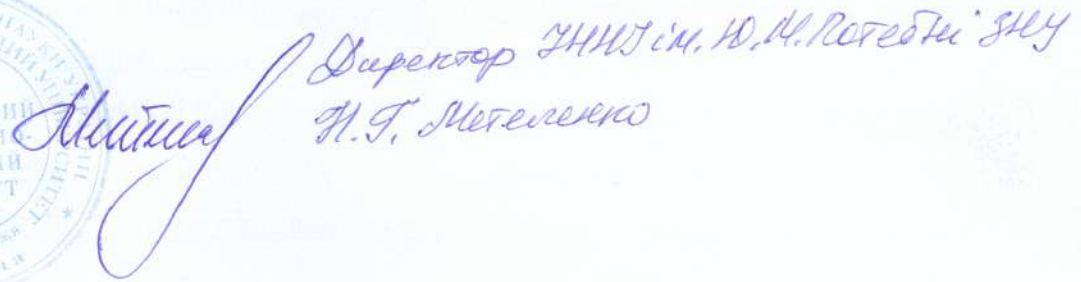 Директор ІННІ ім. Ю.М. Потебні ЗНУ
Н.Г. Метеленко